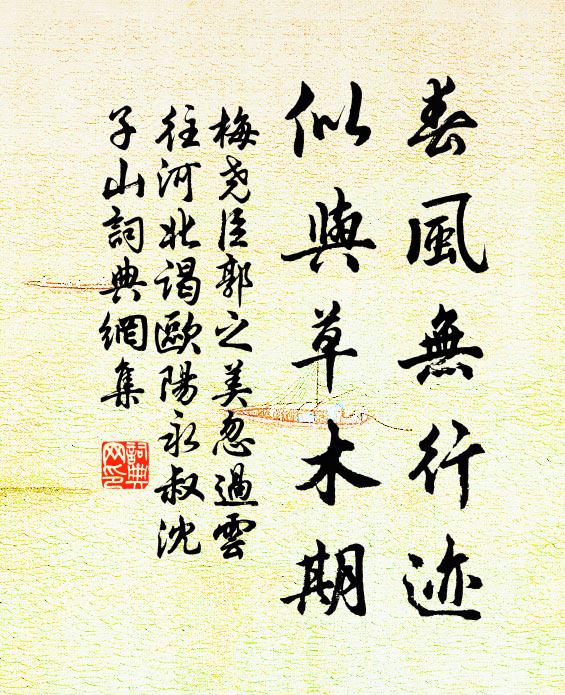 春風無行迹
似與草木期
梅尧臣郭之美忽過雲
往河北谒歐陽永叔沈
子山詞典網集
詞典
网印